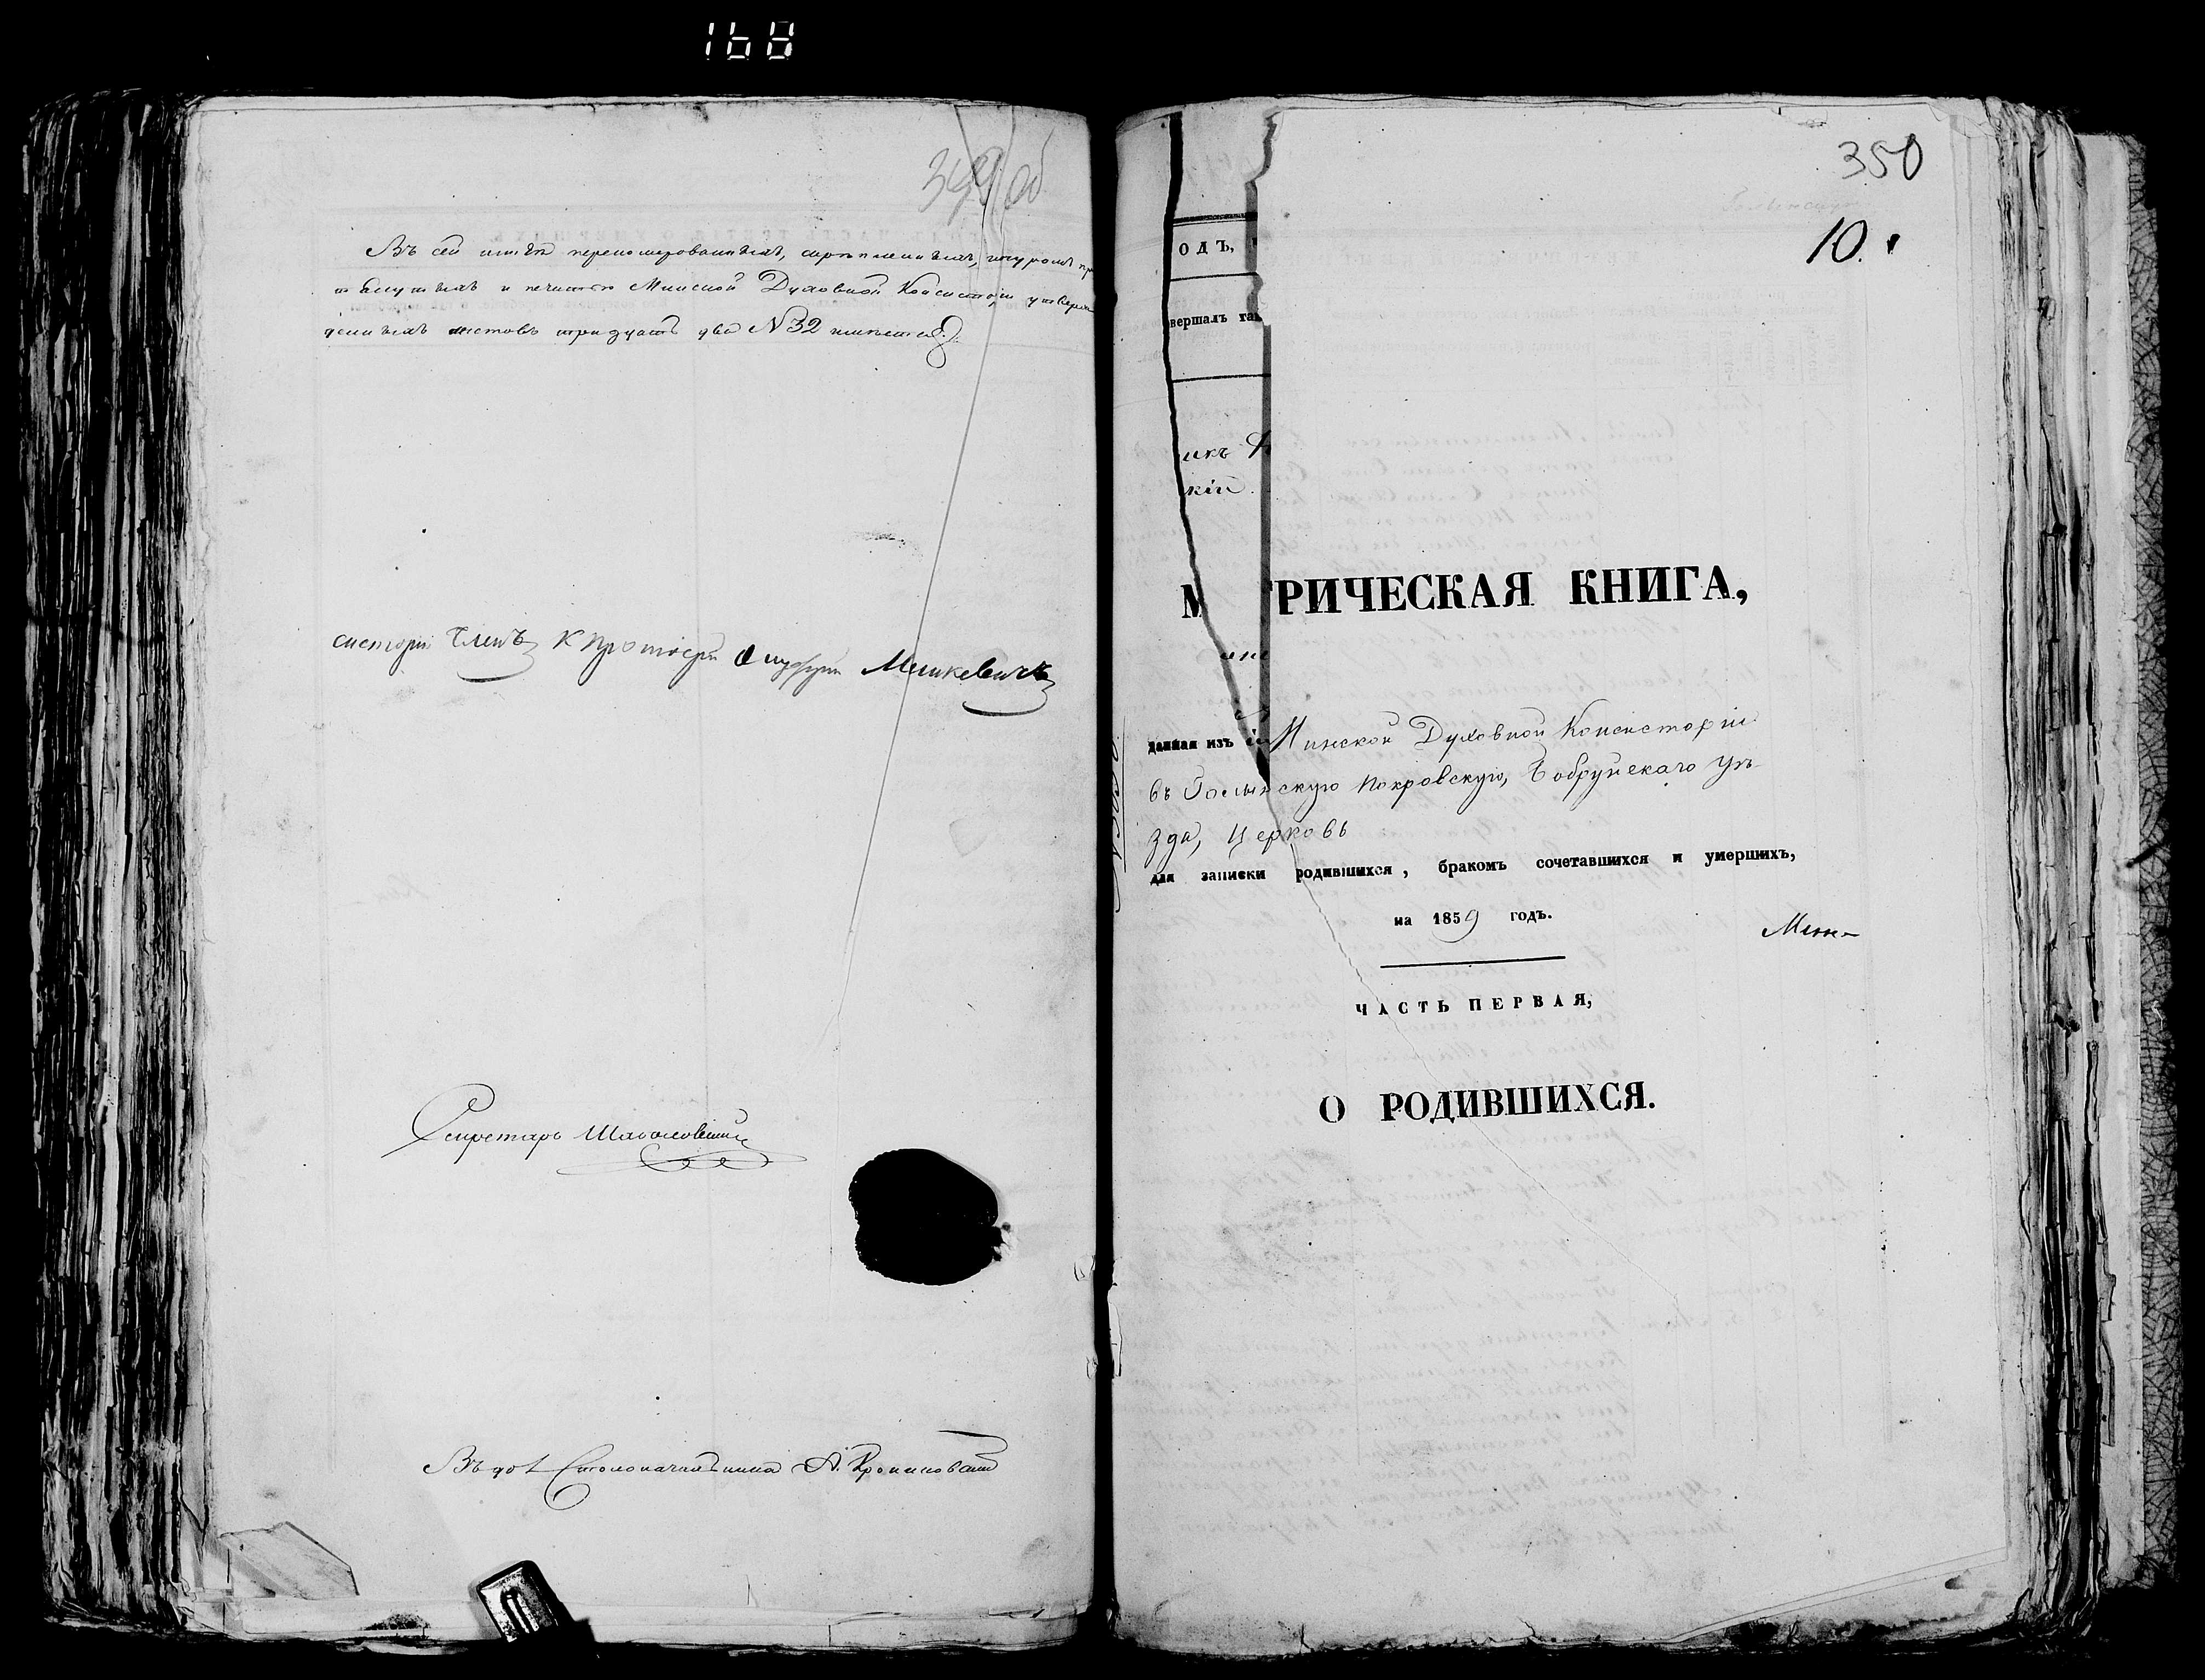 168
349 об
Въ сей книгѣ перенумерованныхъ, скрѣпленныхъ, шнуромъ пр
тянутыхъ и печатью Минской Духовной Консисторіи утверж
денныхъ листовъ тридцать два №32 имѣется
систоріи Членъ К Протоіерей Мишкевичъ
Секретарь
Въ дол Столоначальника А.
350
10.
одъ,
вершалъ та
икъ
кій.
М РИЧЕСКАЯ КНИГА,
данная изъ Минской Духовной Консисторіи
въ Голынскую Покровскую, Бобруйскаго уѣ-
зда, Церковь
для записки родившихся, бракомъ сочетавшихся и умершихъ,
на 1859 годъ.
Мин-
ЧАСТЬ ПЕРВАЯ,
О РОДИВШИХСЯ.